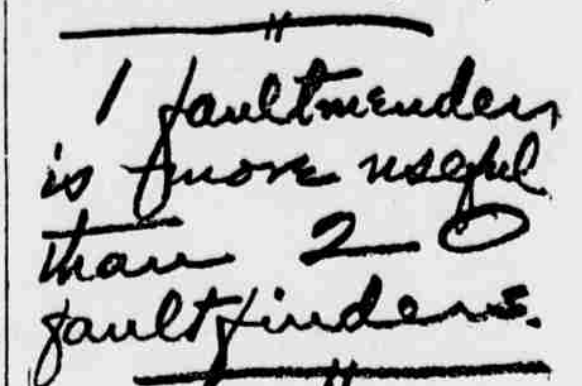 1 faultmender
is more useful
than 20
faultfinders.